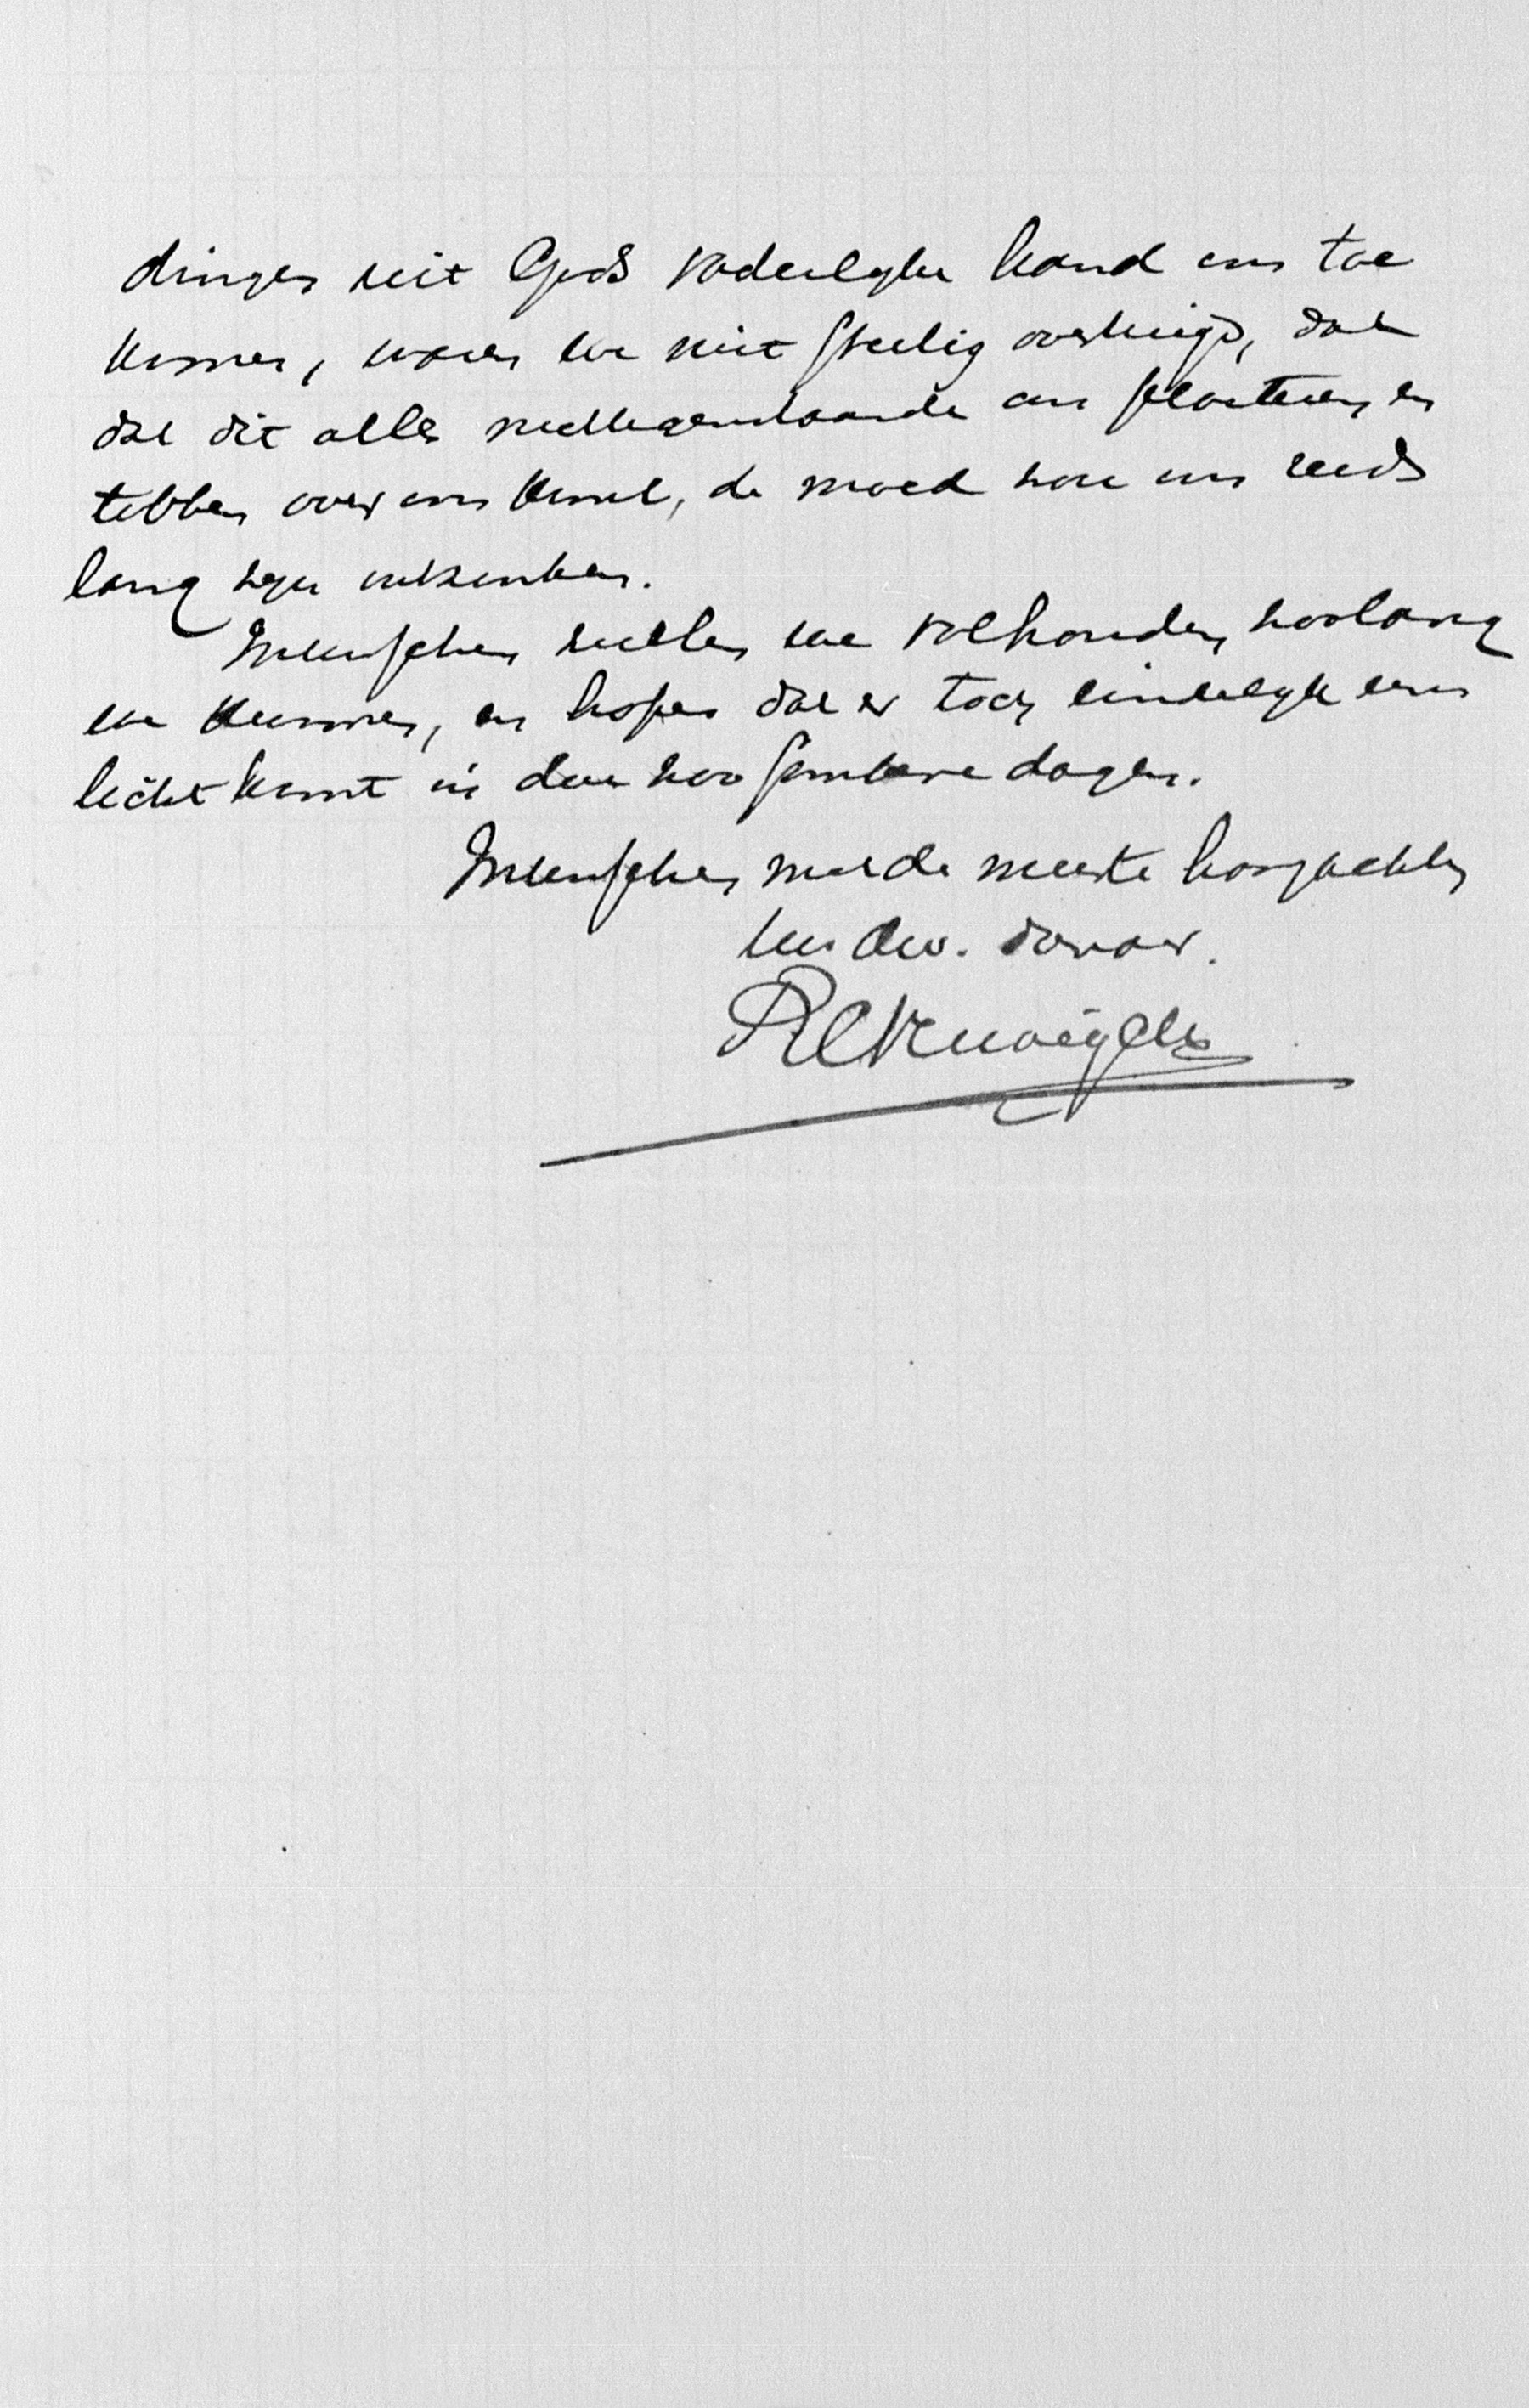 dingen uit Gods vaderlyke hand ons toe
komen, waren we niet stellig overtuigd, dan
dat dit alles niettegenstaande ons en
tobben over ons komt, de moed zou ons reeds
lang zyn ontzonken.
Intusschen zullen we volhouden, zoolang
we kunnen, en hopen dat er toch eindelyk eens
licht komt in deze zoo sombere dagen.
Intusschen met de meeste hoogachting
Uw dw. dienaar.